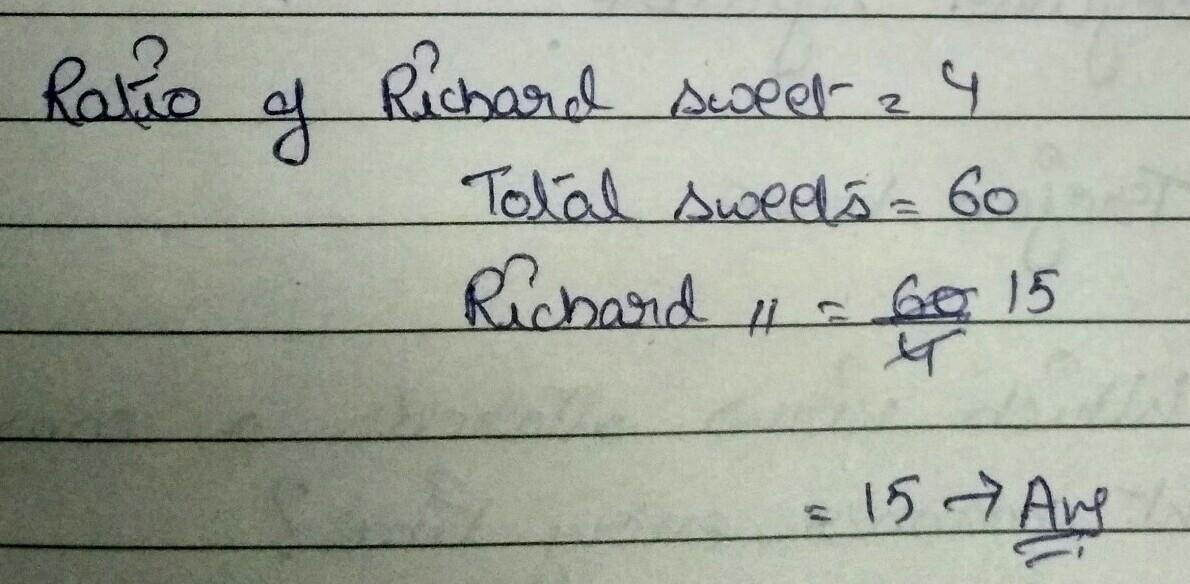 Ratio of Richard sweet = 4
Total sweets = 60
Richard " = 60/4 15
= 15 → Ans